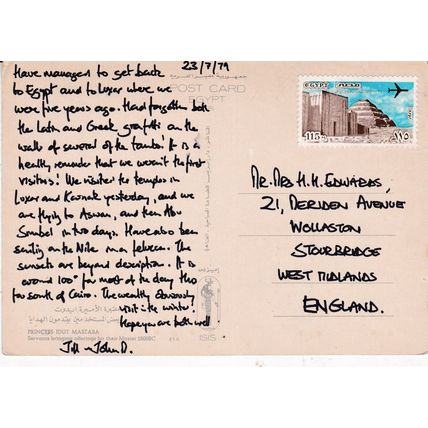 23/7/79
Have managed to get back
to Egypt and to Luxor where we
were five years ago. Had forgotten both
the Latin and Greek graffiti on the
walls of several of the tombs! It is a
healthy reminder that we weren't the first
visitors! We visited the temples in
Luxor and Karnak yesterday, and we
are flying to Aswan, and then Abu
Simbel in two days. Have also been
sailing on the Nile in a felucca. The
sunsets are beyond description. It is
around 100° for most of the day this
far south of Cairo. The wealthy obviously
visit in the winter!
Hope you are both well
Jill & John D.
POST CARD
EGYPT
PRINCESS IDUT MASTABA
Servants bringing offerings for their Master 2800BC
ISIS
EGYPT
مصر
115
١١٥
MR. MRS H.H. EDWARDS,
21, MERIDEN AVENUE
WOLLASTON
STOURBRIDGE
WEST MIDLANDS
ENGLAND.